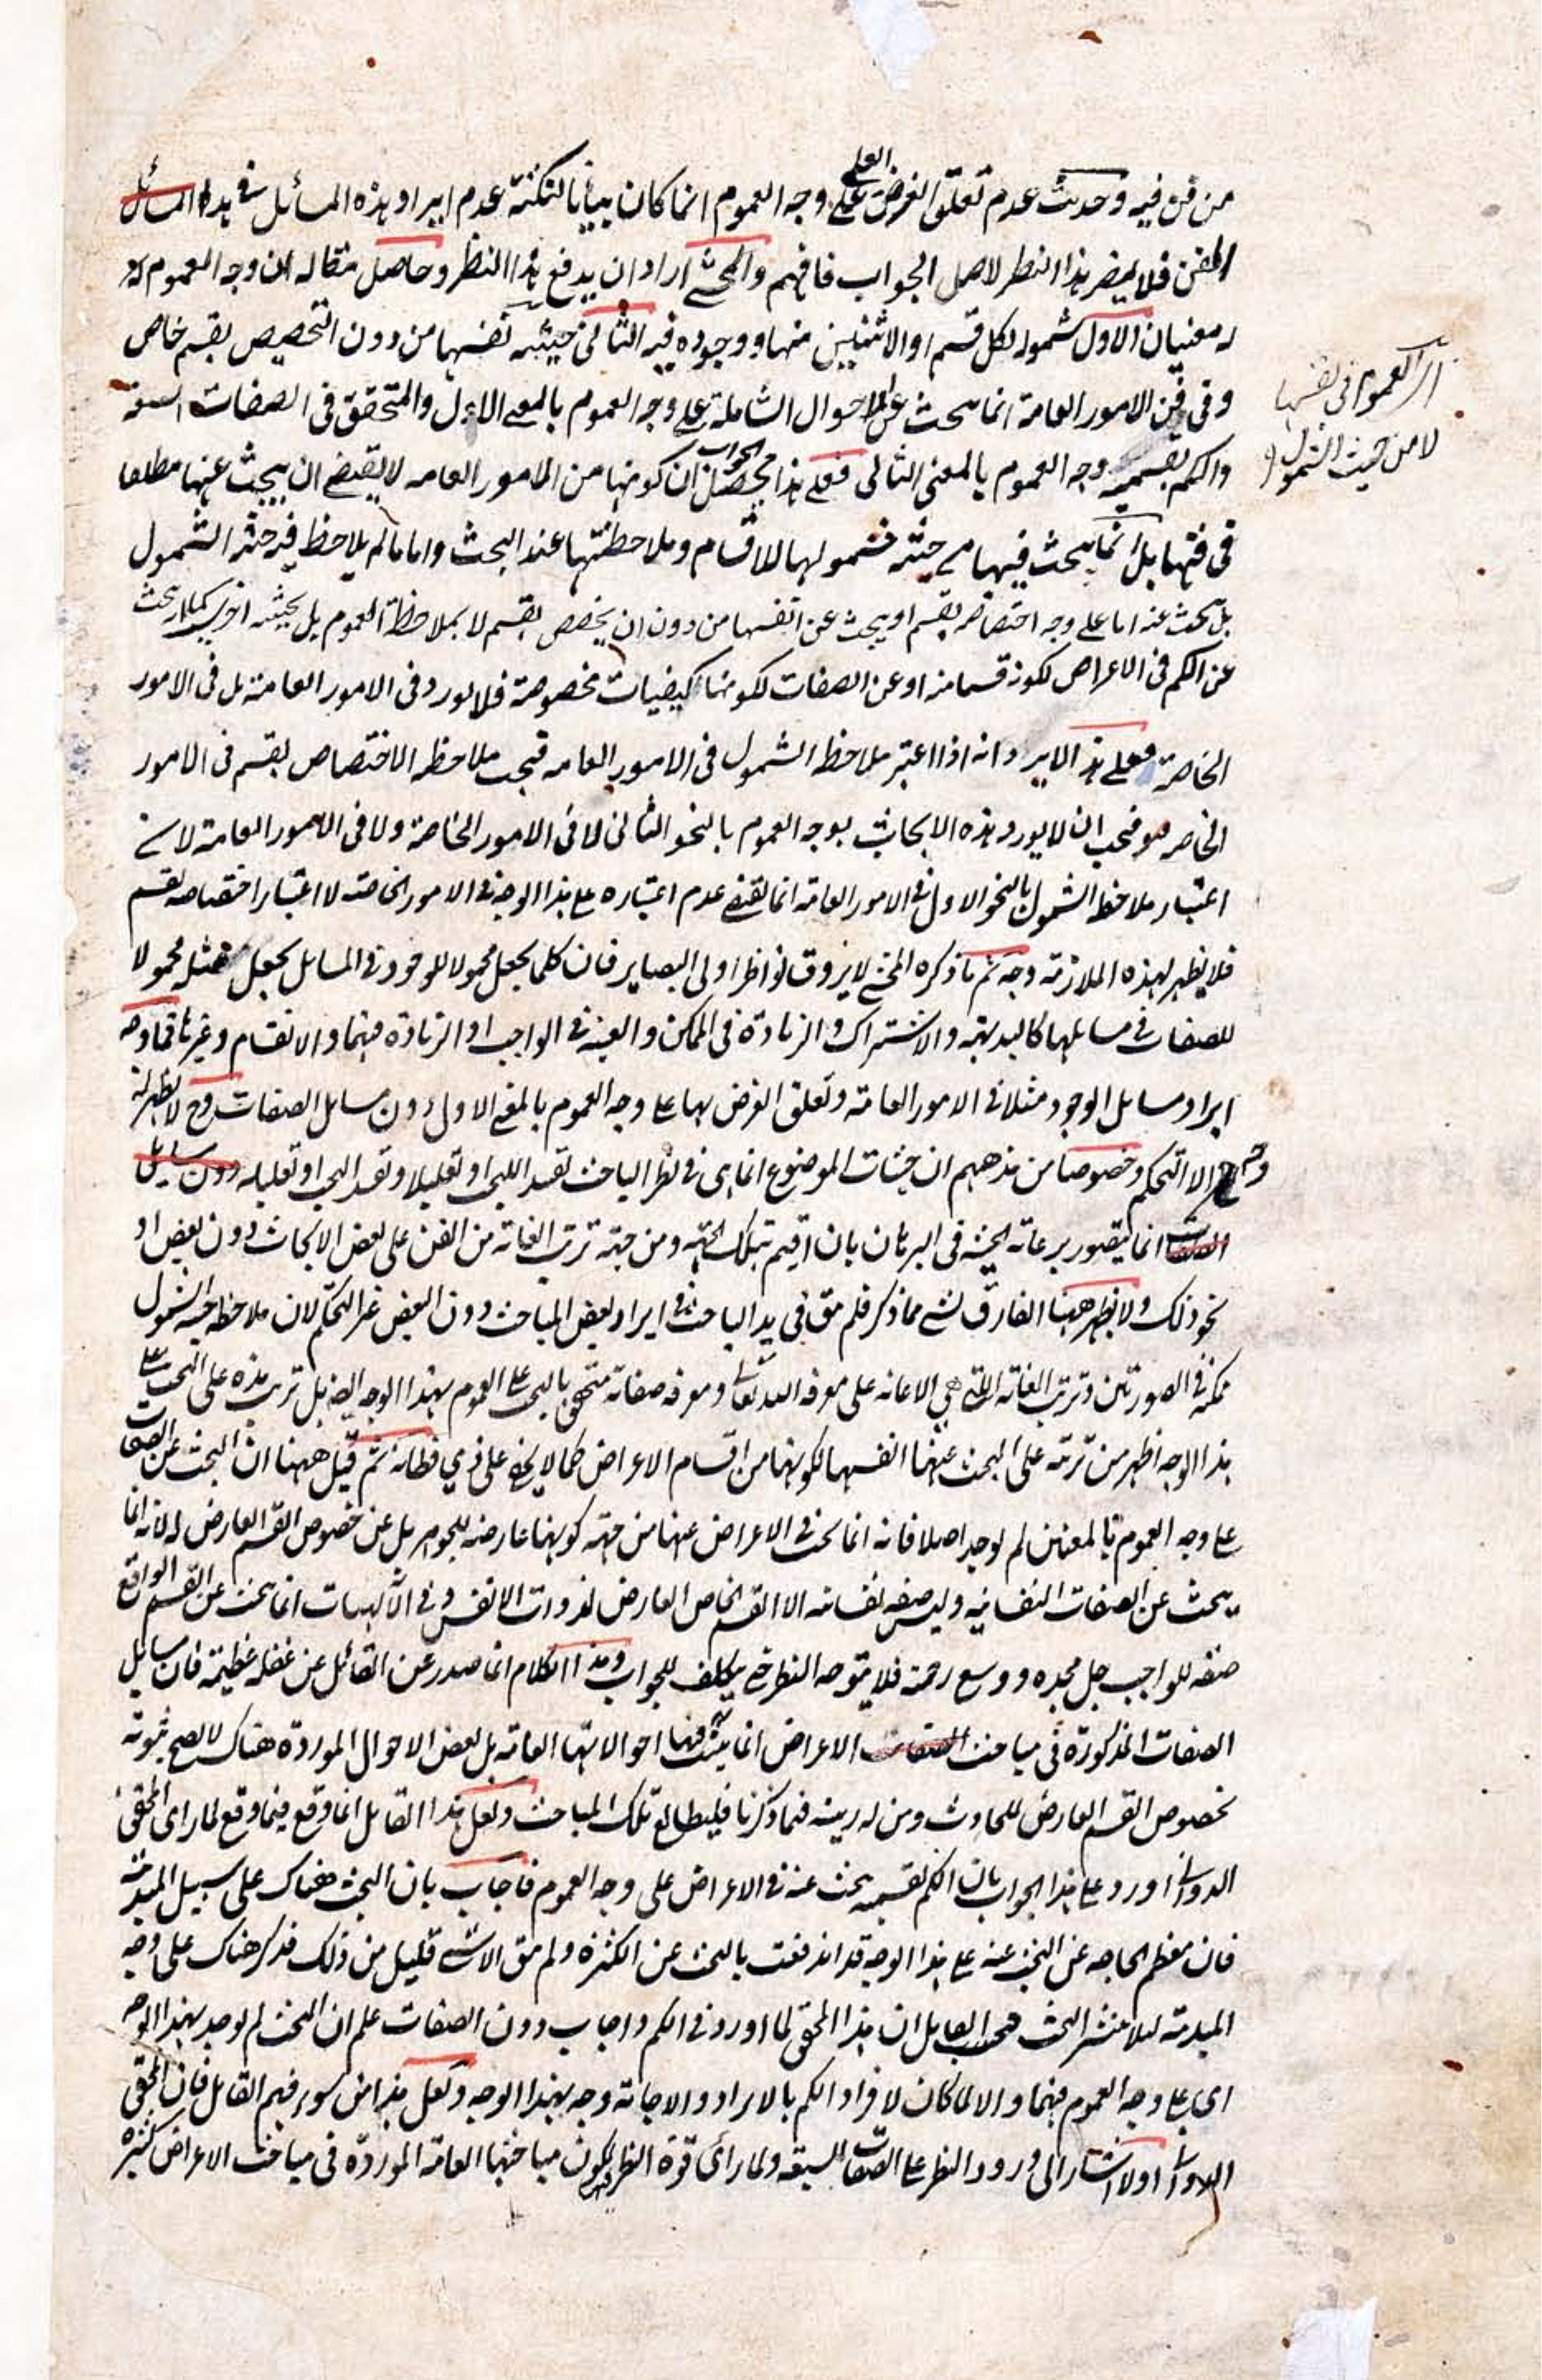 من فن فيه وحديث عدم تعلق الغرض العلمي على وجه العموم انما كان بيانا لنكتة عدم ايراد هذه المسائل في هذا
الفن فلا يضر هذا النظر لاصل الجواب فافهم والمحشي اراد ان يدفع هذا النظر وحاصل مقاله ان وجه العموم
له معنيان الاول شموله لكل قسم او الاثنين منها ووجوده فيه الثاني حيثية نفسها من دون التخصيص بقسم خاص
وفي فن الامور العامة انما يبحث عن الاحوال الشاملة على وجه العموم بالمعنى الاول والمتحقق في الصفات السبعة
والكم بقسميه وجه العموم بالمعنى الثاني فعلى هذا محصل الجواب ان كونها من الامور العامه لا يقتضي ان يبحث عنها مطلقا
في فنها بل انما يبحث فيها من حيثية شمولها للاقسام وملاحظتها عند البحث واما ما لم يلاحظ فيه حيثية الشمول
بل يبحث عنه اما على وجه اختصاصه بقسم او يبحث عن انفسها من دون ان يخصص بقسم لا بملاحظة العموم بل بحيثية اخرى كما يبحث
عن الكم في الاعراض لكونه قسما منه او عن الصفات لكونها كيفيات مخصوصة فلا يورد في الامور العامة بل في الامور
الخاصة فعلى هذا لا يرد انه اذا اعتبر ملاحظة الشمول في الامور العامه فيجب ملاحظة الاختصاص بقسم في الامور
الخاصه فيجب ان لا يورد هذه الابحاث بوجه العموم بالنحو الثاني لا في الامور الخاصة ولا في الامور العامة لان
اعتبار ملاحظة الشمول بالنحو الاول في الامور العامة انما يقتضي عدم اعتباره على هذا الوجه في الامور الخاصة لا اعتبار اختصاصه بقسم
فلا يظهر لهذه الملازمة وجه ثم ما ذكره المحشي لا يروق نواظر اولي البصاير فان كلما يجعل محمولا للوجود في المسائل يجعل مثله محمولا
للصفات في مسايلها كالبديهية والاشتراك والزيادة في الممكن والعينية في الواجب او الزيادة فيهما والانقسام وغيرها فما وجه
ايراد مسايل الوجود مثلا في الامور العامة وتعلق الغرض بها على وجه العموم بالمعنى الاول دون مسايل الصفات وح لا يظهر له
وجه الا التحكم وخصوصا من مذهبهم ان حيثيات الموضوع انما هي في نظر الباحث تقييدا للبحث او تعليلا وتقييد البحث او تعليله
انما يتصور برعاية الحيثية في البرهان بان اقيم بتلك الجهة ومن جهة ترتب الغاية من الفن على بعض الابحاث دون بعض او
نحو ذلك ولا يظهر ههنا الفارق بشيء مما ذكر فلم يبق في يد الباحث في ايراد بعض المباحث دون البعض غير التحكم لان ملاحظة حيثية الشمول
ممكنة في الصورتين وترتب الغاية التي هي الاعانة على معرفة الله تعالى ومعرفة صفاته متحقق بالبحث على العموم بهذا الوجه ايضا بل ترتب هذه على البحث على
هذا الوجه اظهر من ترتبه على البحث عنهما انفسها لكونها من اقسام الاعراض كما لا يخفى على ذي فطانة ثم قيل ههنا ان البحث عن الصفات
على وجه العموم بالمعنيين لم يوجد اصلا فانه انما يبحث في الاعراض عنها من جهة كونها عارضة للجوهر بل عن خصوص القسم العارض له لانه انما
يبحث عن الصفات النفسانية وليس صفه نفسانيه الا القسم الخاص العارض لذوات الانفس وفي الالهيات انما يبحث عن القسم الواقع
صفه للواجب جل مجده ووسع رحمته فلا يتوجه النظر حتى يكلف للجواب وهذا الكلام انما صدر عن القائل عن غفلة عظيمة فان مسايل
الصفات المذكورة في مباحث الاعراض انما يثبت فيها احوالاتها العامه بل بعض الاحوال الموردة هناك لا يصح ثبوته
بخصوص القسم العارض للحادث ومن له ريبة فيما ذكرنا فليطالع تلك المباحث ولعل هذا القايل انما وقع فيما وقع لما راى المحقق
الدواني اورد على هذا الجواب بان الكم بقسميه يبحث عنه في الاعراض على وجه العموم فاجاب بان البحث هناك على سبيل المبدئية
فان معظم الحاجه عن البحث عنه على هذا الوجه قد اندفعت بالبحث عن الكثرة ولم يبق الا شيء قليل من ذلك فذكر هناك على وجه
المبدئية لئلا ينتشر البحث فحسب القايل ان هذا المحقق لما اورد في الكم واجاب دون الصفات علم ان البحث لم يوجد بهذا الوجه
اي على وجه العموم فيهما والا لما كان لافراد الكم بالايراد والاجابة وجه بهذا الوجه ولعل هذا من سوء فهم القائل فان المحقق
الدواني اولا اشار الى ورود النظر على الصفات السبعة ولما راى قوة النظر لكون مباحثها العامة الموردة في مباحث الاعراض كثيرة
اي العموم في نفسها
لا من حيث الشمول